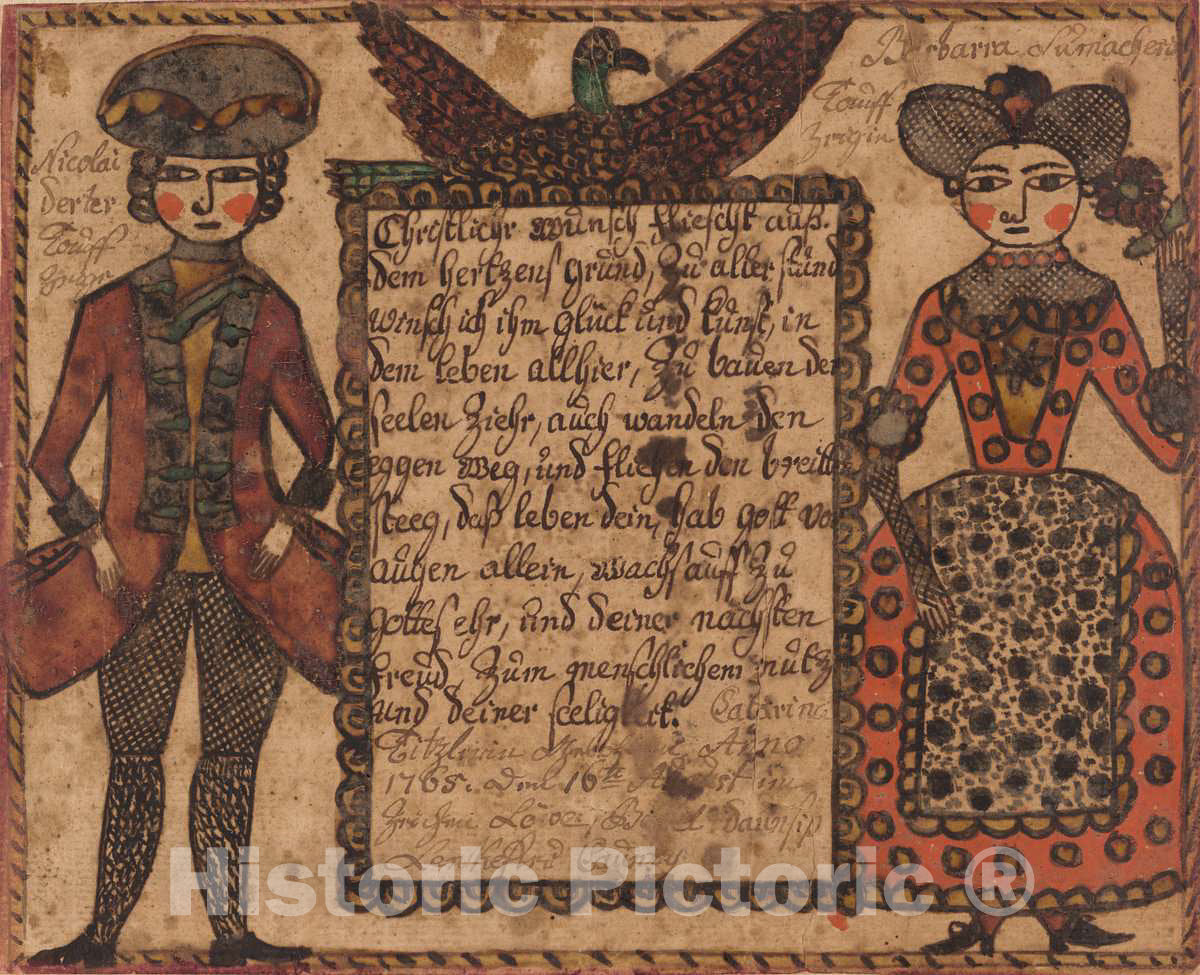 Nicolai
derter
Touff
Barbarra Sumachers
Touff
Zeigin
Christlichr wunsch fliescht auß.
dem hertzens grund, Zu aller stund
winsch ich ihm glück und kunst, in
dem leben allhier, Zu bauen der
seelen Ziehr, auch wandeln den
eggen weg, und fliehen den breitten
steeg, daß leben dein, hab gott vor
augen allein, wachs auff zu
gottes ehr, und deiner nachsten
freud, Zum menschlichem nutz
und deiner seeligkeit. Catarina
Anno
1765. den 16te August im
Zeichen Löwen
Historic Pictoric ®